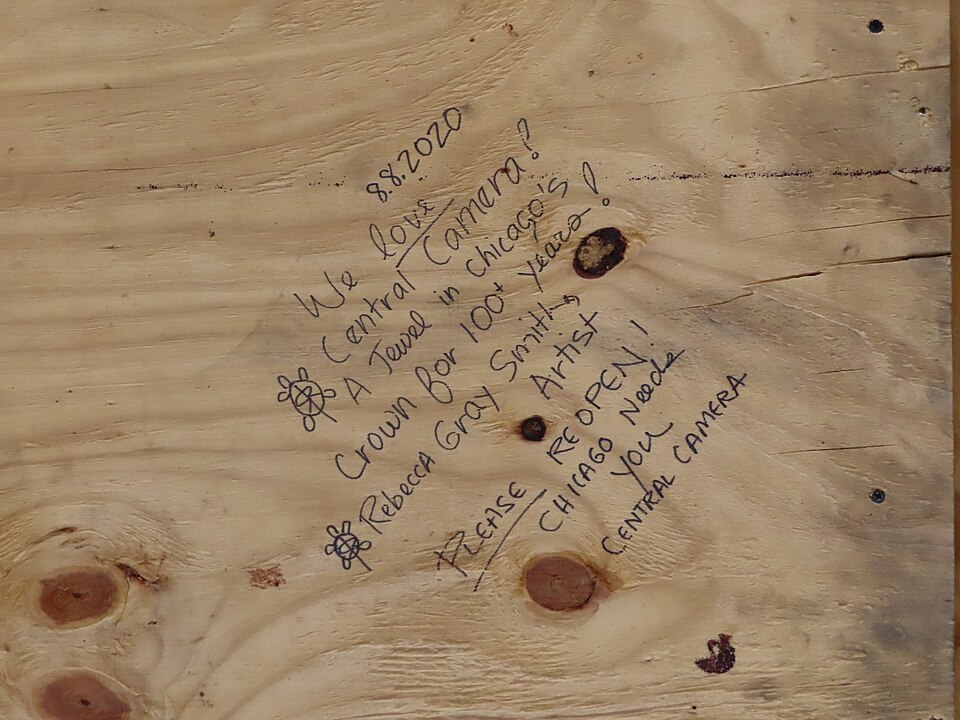 8.8.2020
We love
Central Camera!
A Jewel in Chicago's
Crown for 100+ years!
Rebecca Gray Smith,
Artist
PLEASE REOPEN!
CHICAGO Needs
YOU
CENTRAL CAMERA